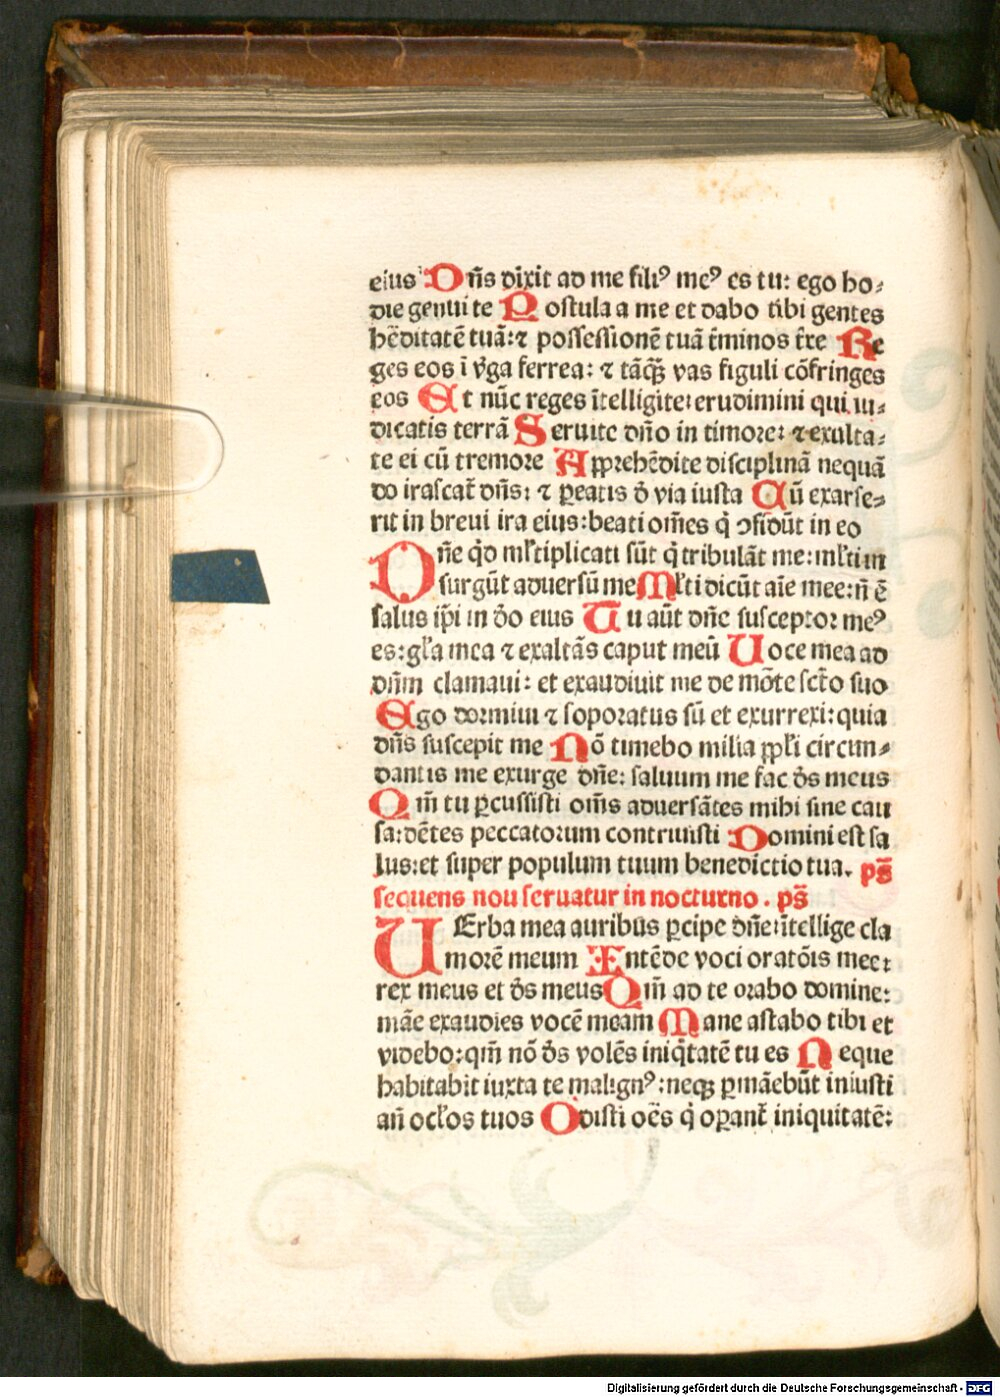 eius Dñs dixit ad me filiꝰ meꝰ es tu: ego ho⸗
die genui te Postula a me et dabo tibi gentes
hẽditatẽ tuã: ⁊ possessionẽ tuã t̃minos tr̃e Re
ges eos ĩ ṽga ferrea: ⁊ tãqꝫ vas figuli cõfringes
eos Et nũc reges ĩtelligite: erudimini qui iu⸗
dicatis terrã Seruite dño in timore: ⁊ exulta⸗
te ei cũ tremore Apprehẽdite disciplinã nequã
do irascat̃ dñs: ⁊ ꝑeatis d̃ via iusta Cũ exarse⸗
rit in breui ira eius: beati om̃es q̃ ↄfidũt in eo
Dñe qd̃ ml̃tiplicati sũt q̃ tribulãt me: ml̃ti in
surgũt aduersũ me Ml̃ti dicũt aĩe mee: ñ ẽ
salus ip̃i in d̃o eius Tu aũt dñe susceptor meꝰ
es: gl̃a mea ⁊ exaltãs caput meũ Uoce mea ad
dñm clamaui: et exaudiuit me de mõte sctõ suo
Ego dormiui ⁊ soporatus sũ et exurrexi: quia
dñs suscepit me Nõ timebo milia ppl̃i circun⸗
dantis me exurge dñe: saluum me fac d̃s meus
Qm̃ tu ꝑcussisti om̃s aduersãtes mihi sine cau
sa: dẽtes peccatorum contriuisti Domini est sa
lus: et super populum tuum benedictio tua. ps̃
sequens non seruatur in nocturno. ps̃
UErba mea auribus ꝑcipe dñe: ĩtellige cla
morẽ meum Intẽde voci oratõis mee:
rex meus et d̃s meus Qm̃ ad te orabo domine:
mãe exaudies vocẽ meam Mane astabo tibi et
videbo: qm̃ nõ d̃s volẽs iniq̃tatẽ tu es Neque
habitabit iuxta te malignꝰ: neqꝫ ꝑmãebũt iniusti
añ ocl̃os tuos Odisti oẽs q̃ oꝑant̃ iniquitatẽ:
Digitalisierung gefördert durch die Deutsche Forschungsgemeinschaft - DFG